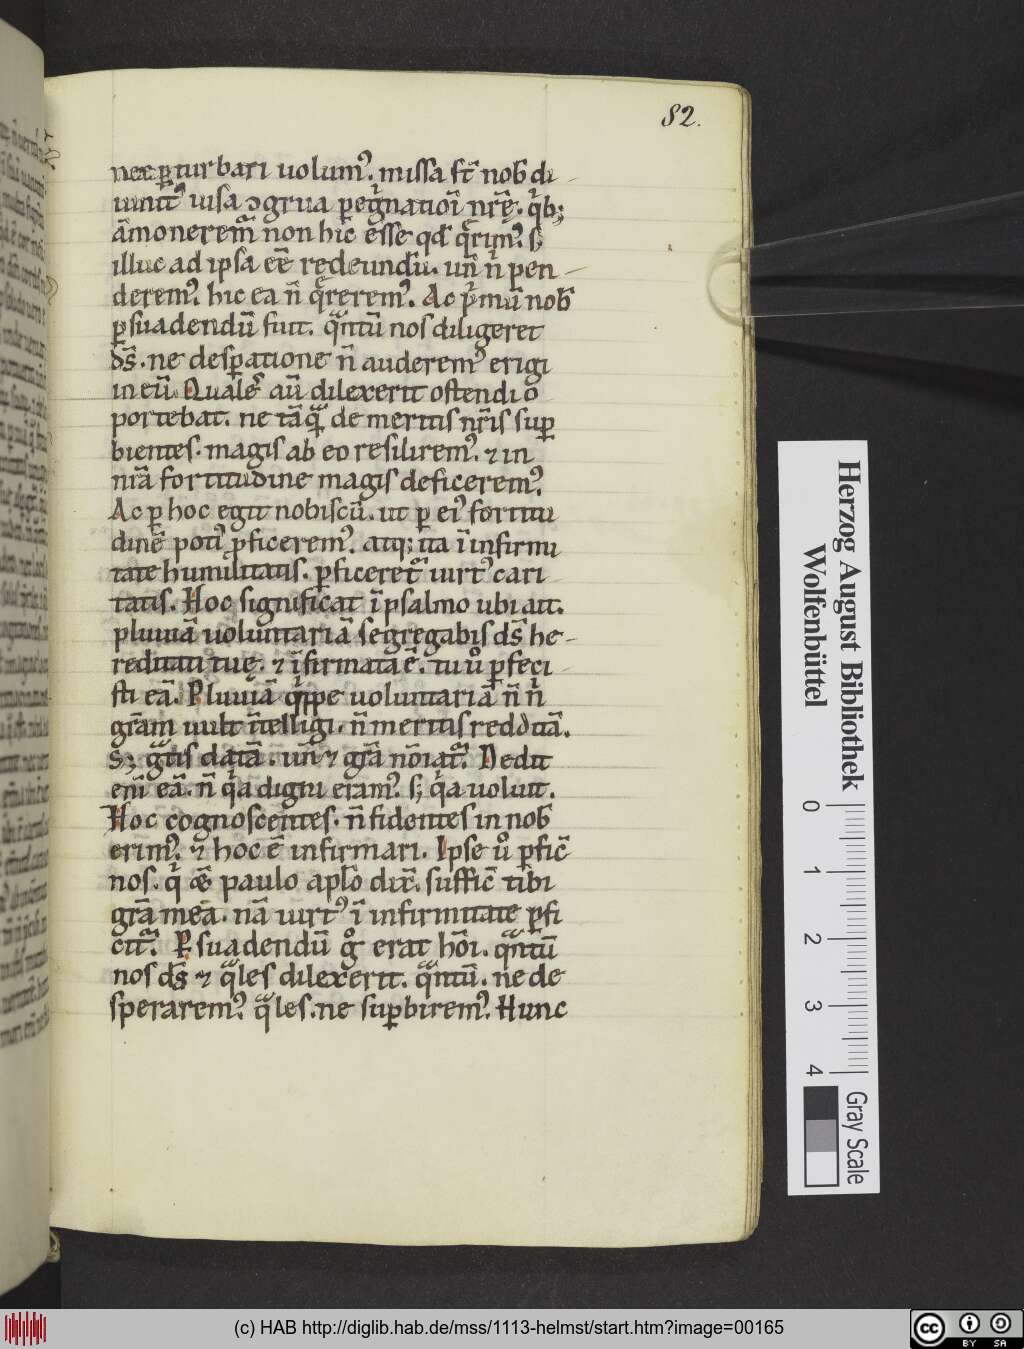 82.
nec ꝑturbari uolumꝰ. missa st̄ nob̄ di
uinit᷒ uisa ↄgrua ꝑegͥnatiōi nr̄ę. qͥb;
āmoneremͬ non hic esse qd̄ qͣrimꝰ. s;
illuc ad ipsa eē redeundū. un̄ n̄ pen
deremꝰ. hic ea n̄ qͣreremꝰ. Ac pͥmū nob̄
ꝑsuadendū fuit. qͣntū nos diligeret
ds̄. ne desꝑatione n̄ auderemꝰ erigi
in eū. Qualeſ aū dilexerit ostendi o
portebat. ne tāqͣ de meritis nr̄is suꝑ
bientes. magis ab eo resiliremꝰ. ⁊ in
nr̄a fortitudine magis deficeremꝰ.
Ac ꝑ hoc egit nobiscū. ut ꝑ eiꝰ fortitu
dinē potiꝰ ꝓficeremꝰ. atq; ita ī infirmi
tate humilitatis. ꝑficeretͬ uirtꝰ cari
tatis. Hoc significat ī psalmo ubi ait.
pluuiā uoluntariā segregabis ds̄ he
reditati tuę. ⁊ īfirmata ē. tu ů ꝑfeci
sti eā. Pluuiā qͥppe uoluntariā n̄ nͥ
grām uult īntelligi. n̄ meritis redditā.
S; gͣtis datā. un̄ ⁊ grā nōiatͬ. Dedit
eni̅ eā. n̄ qͥa digni eramꝰ. s; qͥa uoluit.
Hoc cognoscentes. n̄ fidentes in nob̄
erimꝰ. ⁊ hoc ē infirmari. Ipse ů ꝑfic̄
nos. qͥ &̄ paulo aplō dix̄. suffic̄ tibi
grā mea. nā uirtꝰ ī infirmitate ꝑfi
citͬ. Ꝑsuadendū gͦ erat hōi. qͣntū
nos ds̄ ⁊ qͣles dilexerit. qͣntū. ne de
speraremꝰ. qͣles. ne suꝑbiremꝰ. Hunc
Herzog August Bibliothek
Wolfenbüttel
0 1 2 3 4
Gray Scale
(c) HAB http://diglib.hab.de/mss/1113-helmst/start.htm?image=00165
cc BY SA